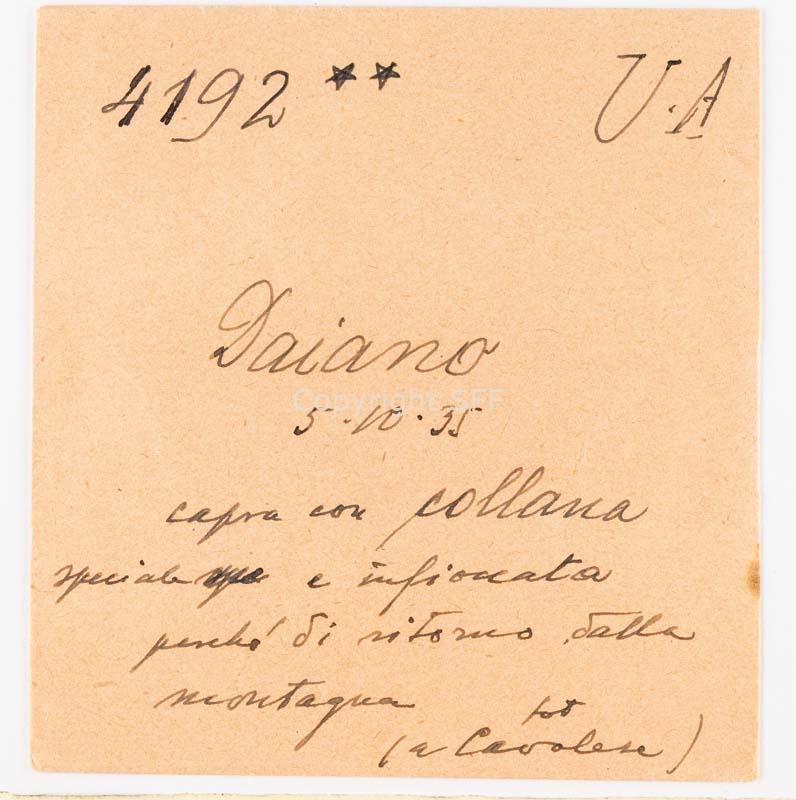 4192 ** U.A
Daiano
Copyright SFF
5.10.35
capra con collana
speciale e infioccata
perché di ritorno dalla
montagna
fot
(a Cavalese)